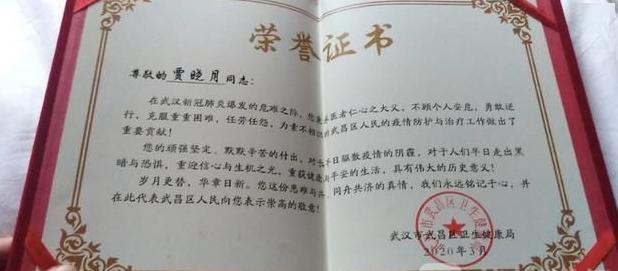 荣誉证书
尊敬的 贾晓月 同志：
在武汉新冠肺炎爆发的危难之际，您秉医者仁心之大义，不顾个人安危，勇敢逆
行，克服重重困难，任劳任怨，为素不相识的武昌区人民的疫情防护与治疗工作做出了
重要贡献！
您的顽强坚定、默默辛苦的付出，对于早日驱散疫情的阴霾，对于人们早日走出黑
暗与恐惧，重迎信心与生机之光，重获健康与平安的生活，具有伟大的历史意义！
岁月更替，华章日新。您这份患难与共、同舟共济的真情，我们永远铭记于心，并
在此代表武昌区人民向您表示崇高的敬意！
武汉市武昌区卫生健康局
2020年3月